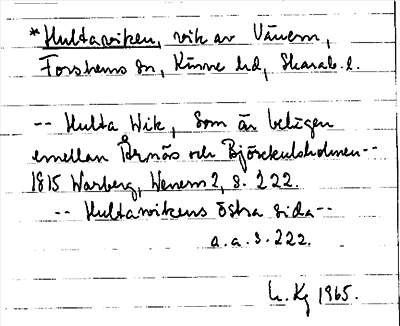 *Hultaviken, vik av Vänern,
Forshems sn, Kinne hd, Skarab. l.
-- Hulta Wik, som är belägen
emellan Årnäs och Björckulsholmen--
1815 Warberg, Wenern 2, s. 222.
-- Hultavikens östra sida--
a.a. s. 222.
L. Kg 1965.